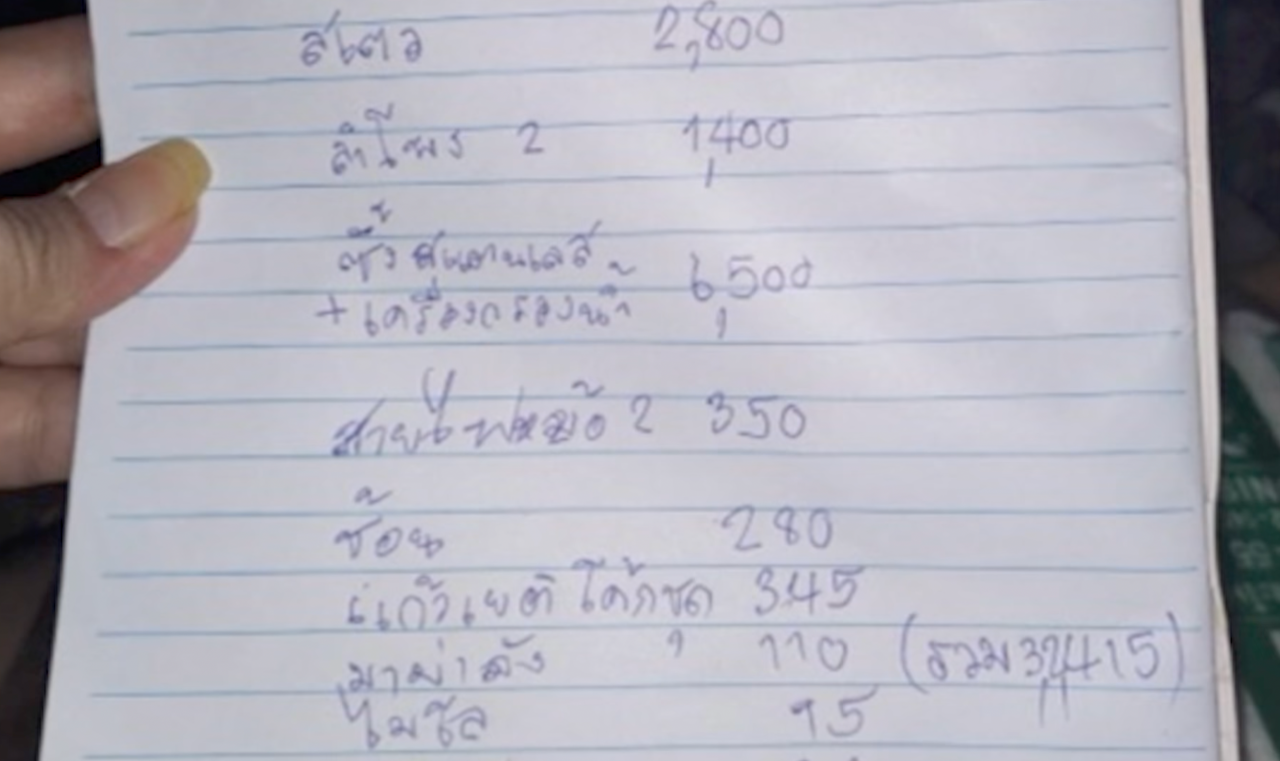 สเตว 2,800
ลำโพง 2 1,400
ซิ้งสแตนเลส
+ เครื่องกรองน้ำ 6,500
สายไฟหม้อ 2 350
ช้อน 280
แก้วเยติ โค้กชุด 345
มาม่าลัง 110 (รวม 32,415)
ไมโล 95